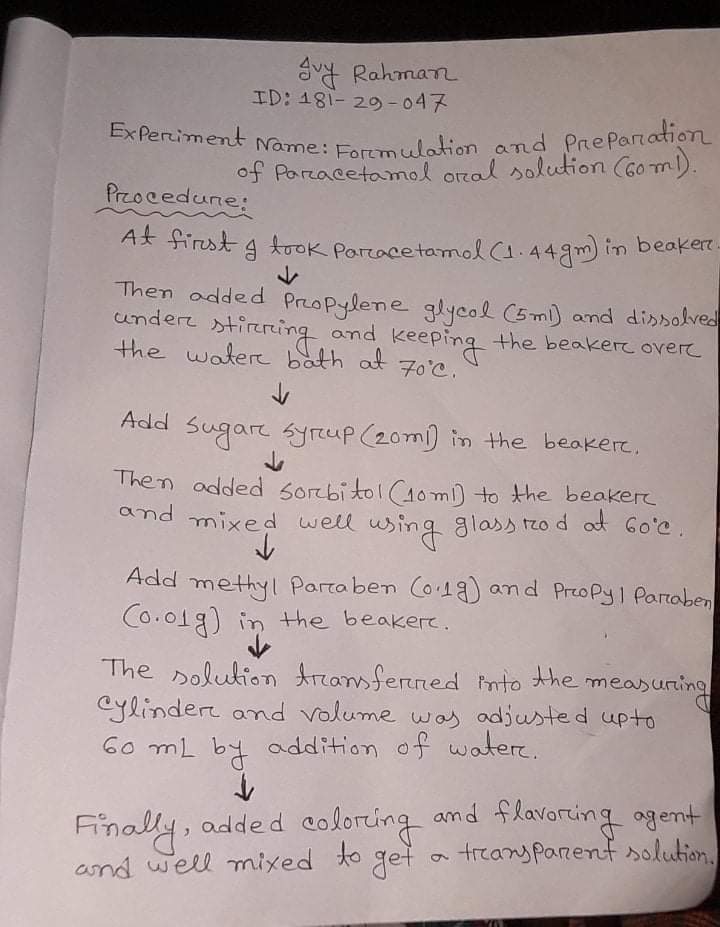 Ivy Rahman
ID: 181-29-047
Experiment Name: Formulation and Preparation
of Paracetamol oral solution (60ml).
Procedure:
At first I took Paracetamol (1.44gm) in beaker.
↓
Then added Propylene glycol (5ml) and dissolved
under stirring and keeping the beaker over
the water bath at 70°c.
↓
Add sugar syrup (20ml) in the beaker.
↓
Then added sorbitol (10ml) to the beaker
and mixed well using glass rod at 60°c.
↓
Add methyl Paraben (0.1g) and Propyl Paraben
(0.01g) in the beaker.
↓
The solution transferred into the measuring
cylinder and volume was adjusted upto
60 mL by addition of water.
↓
Finally, added coloring and flavoring agent
and well mixed to get a transparent solution.